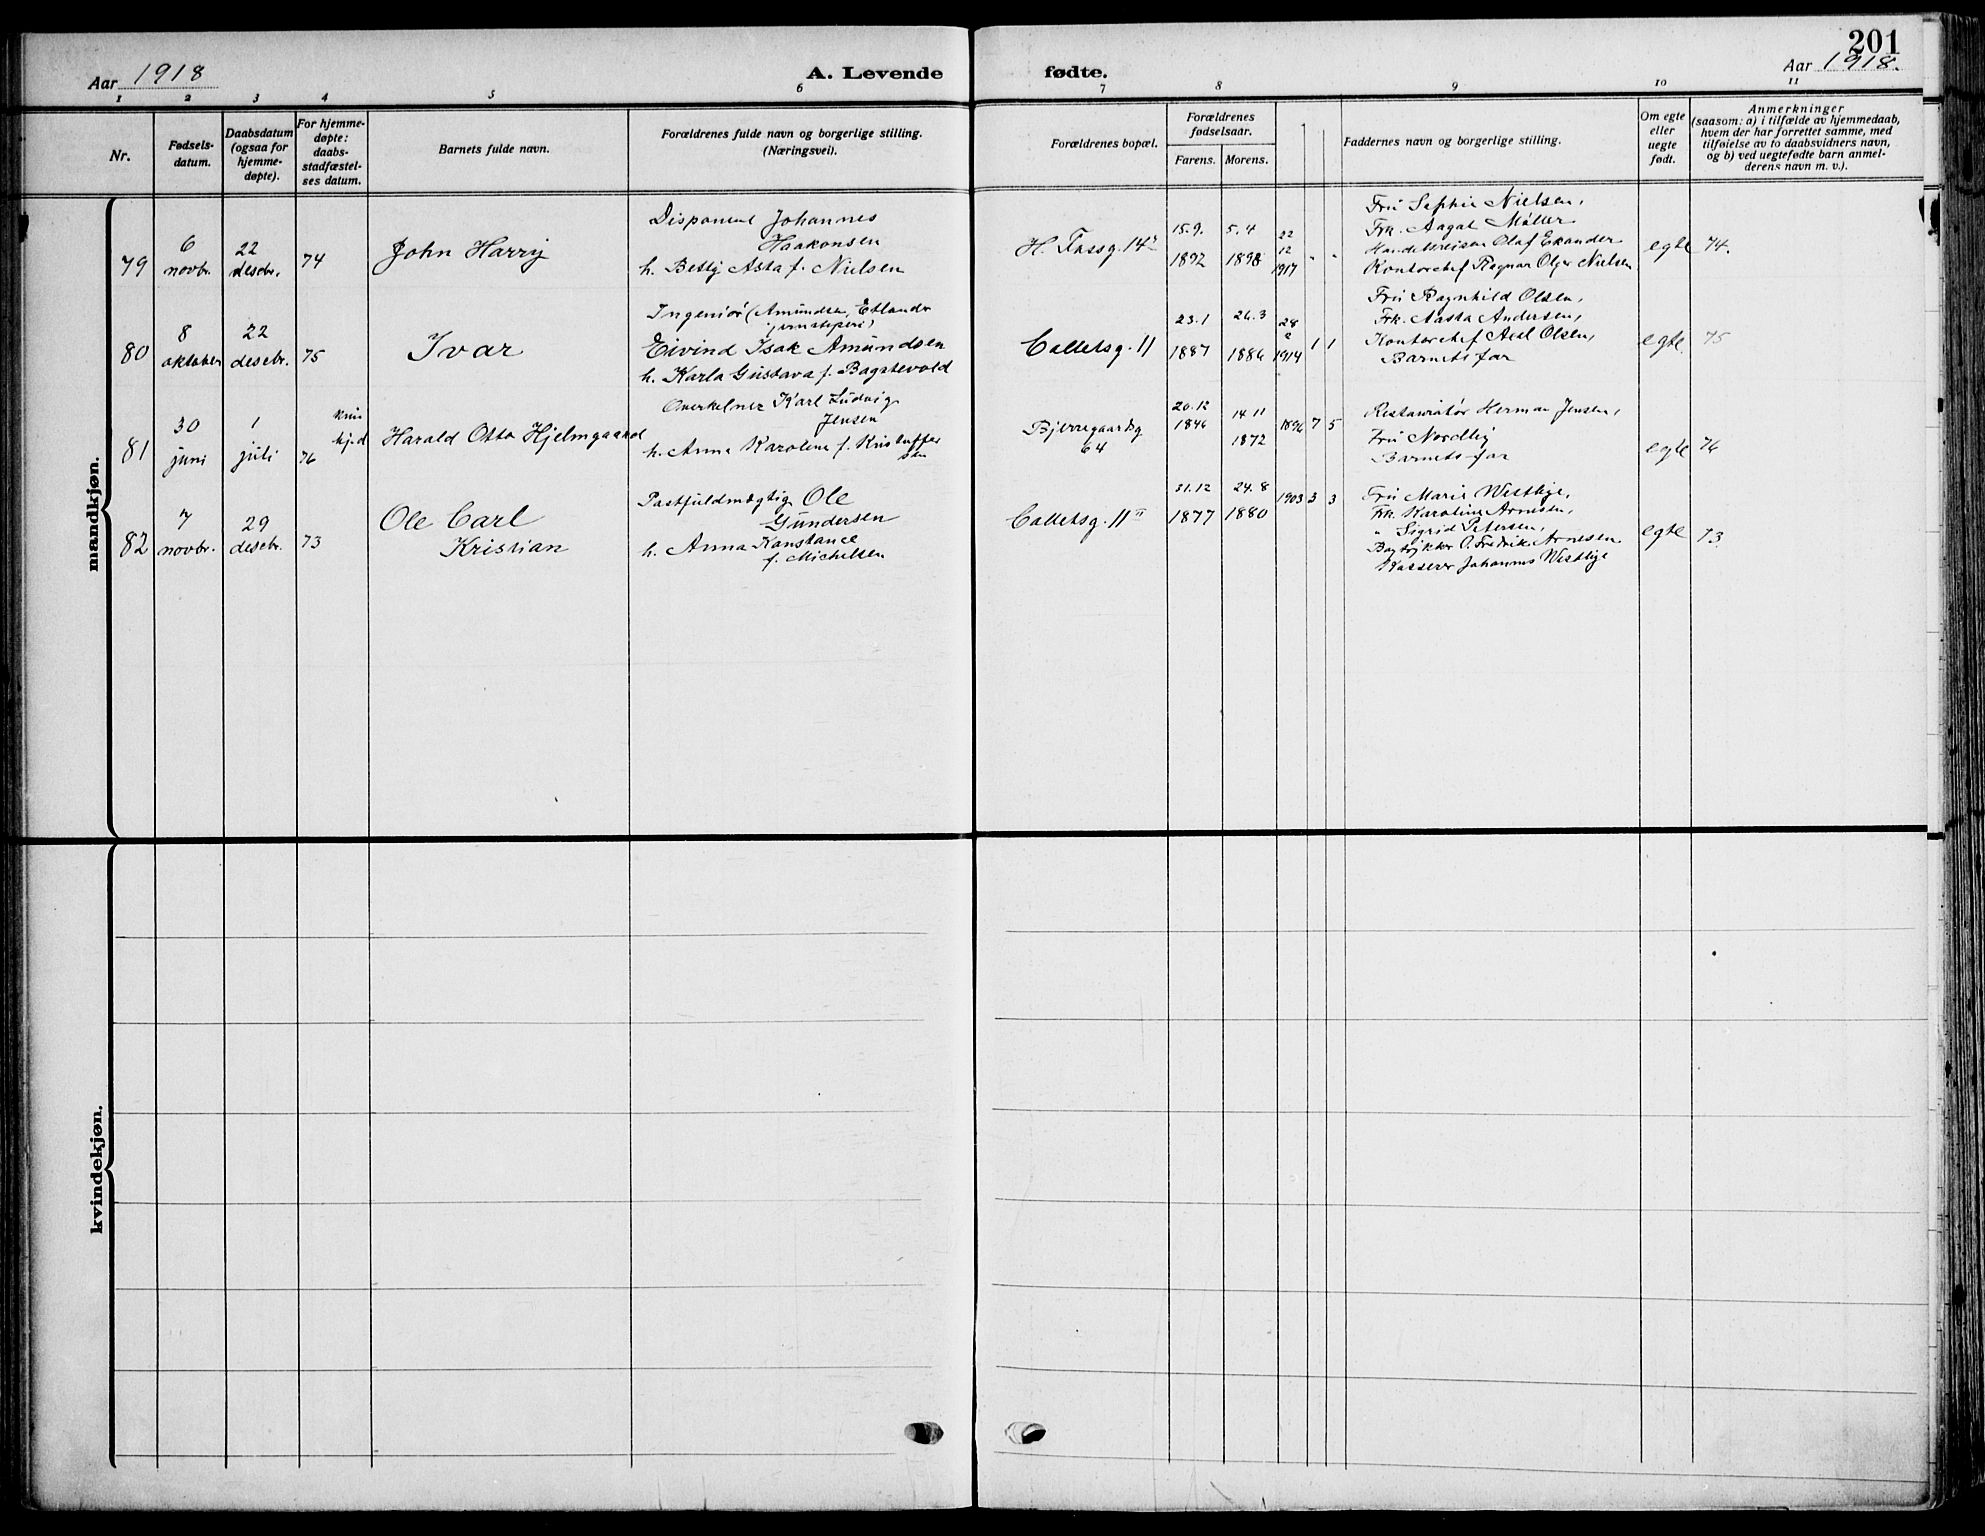 201
Aar 1918
A. Levende
fødte.
Aar 1918.
1 2 3 4 5 6 7 8 9 10 11
Nr.
Fødsels-
datum.
Daabsdatum
(ogsaa for
hjemme-
døpte).
For hjemme-
døpte:
daabs-
stadfæstel-
ses datum.
Barnets fulde navn.
Forældrenes fulde navn og borgerlige stilling.
(Næringsvei).
Forældrenes bopæl.
Forældrenes
fødselsaar.
Farens. Morens.
Faddernes navn og borgerlige stilling.
Om egte
eller
uegte
født.
Anmerkninger
(saasom: a) i tilfælde av hjemmedaab,
hvem der har forrettet samme, med
tilføielse av to daabsvidners navn,
og b) ved uegtefødte barn anmel-
derens navn m. v.).
mandkjøn.
79
6
novbr.
22
desebr.
74
John Harry
Disponent Johannes
Haakonsen
h. Betty Asta f. Nielsen
H. Tassg. 14
15.9.
1892
5.4
1898
22
12
1917
" "
Fru Sophie Nielsen,
Frk. Aagot Møller
Handelsreisen Olaf Ekander
Kontorchef Ragnar Olger Nielsen
egte
74.
80
8
oktober
22
desebr.
75
Ivar
Ingeniør (Amundsen,
Eivind Isak Amundsen
h. Karla Gustava f. Bagstevold
Colletsg. 11
23.1
1887
26.3
1886
28
2
1914
1 1
Fru Ragnhild Olsen,
Frk. Aasta Andersen,
Kontorchef Axel Olsen,
Barnets far
egte.
75
81
30
juni
1
juli
kun
hj.d
76
Harald Otto Hjelmgaard
Overkelner Karl Ludvig
Jensen
h. Anna Karoline f. Kristoffer
sen
Bjerregaardsg
64
20.12
1846
14.11
1872
1896
7 5
Restauratør Herman Jensen,
Fru Nordby
Barnets far
egte
76
82
7
novbr.
29
desebr.
73
Ole Carl
Kristian
Postfuldmægtig Ole
Gundersen
h. Anna Konstance
f. Michelsen
Colletsg. 11 II
31.12
1877
24.8
1880
1903
3 3
Fru Marie Westbye,
Frk. Karoline Arnesen,
" Sigrid Petersen,
Bogtrykker O. Fredrik Arnesen
Kasserer Johannes Westbye
egte
73.
kvindekjøn.